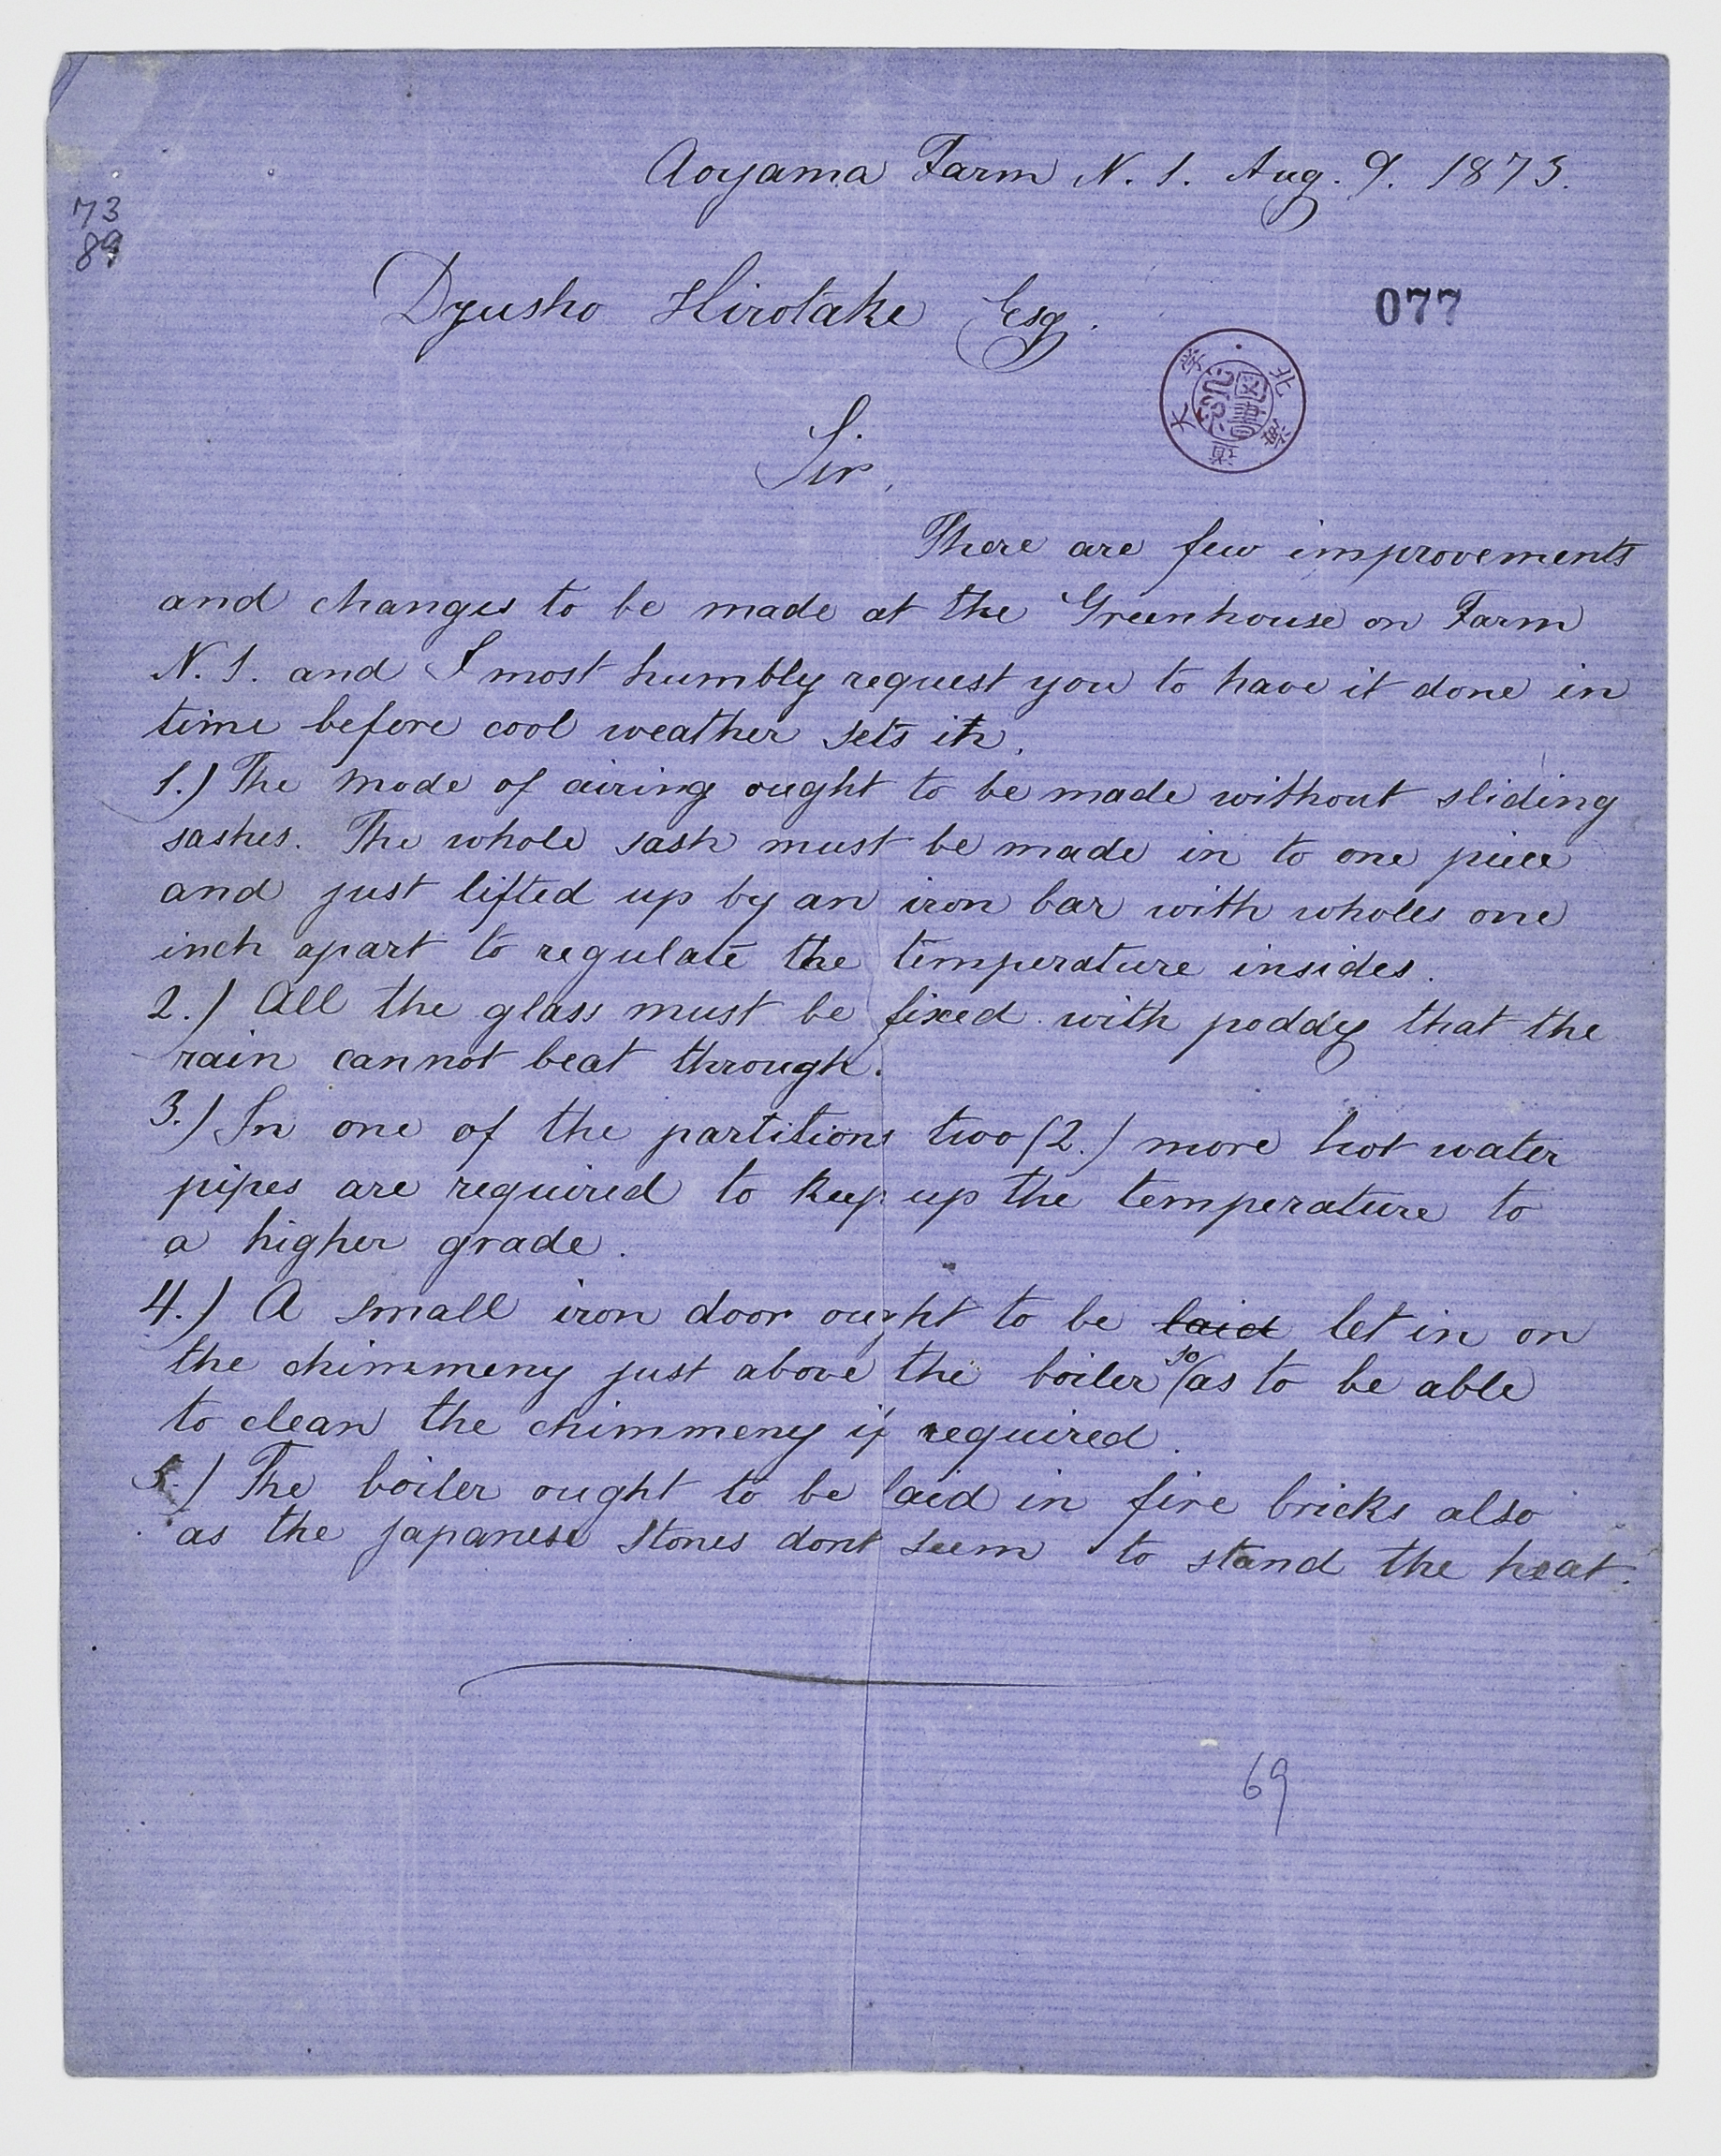 Aoyama Farm N. 1. Aug. 9. 1873.
73
89
Dzusho Hirotake Esq.
077
Sir,
There are few improvements
and changes to be made at the Greenhouse on Farm
N. 1. and I most humbly request you to have it done in
time before cool weather sets in.
1.) The mode of airing ought to be made without sliding
sashes. The whole sash must be made in to one piece
and just lifted up by an iron bar with wholes one
inch apart to regulate the temperature insides.
2.) All the glass must be fixed with poddy that the
rain cannot beat through.
3.) In one of the partitions two (2.) more hot water
pipes are required to keep up the temperature to
a higher grade.
4.) A small iron door ought to be laid let in on
the chimmeny just above the boiler so as to be able
to clean the chimmeny if required.
5.) The boiler ought to be laid in fire bricks also
as the japanese stones dont seem to stand the heat.
69